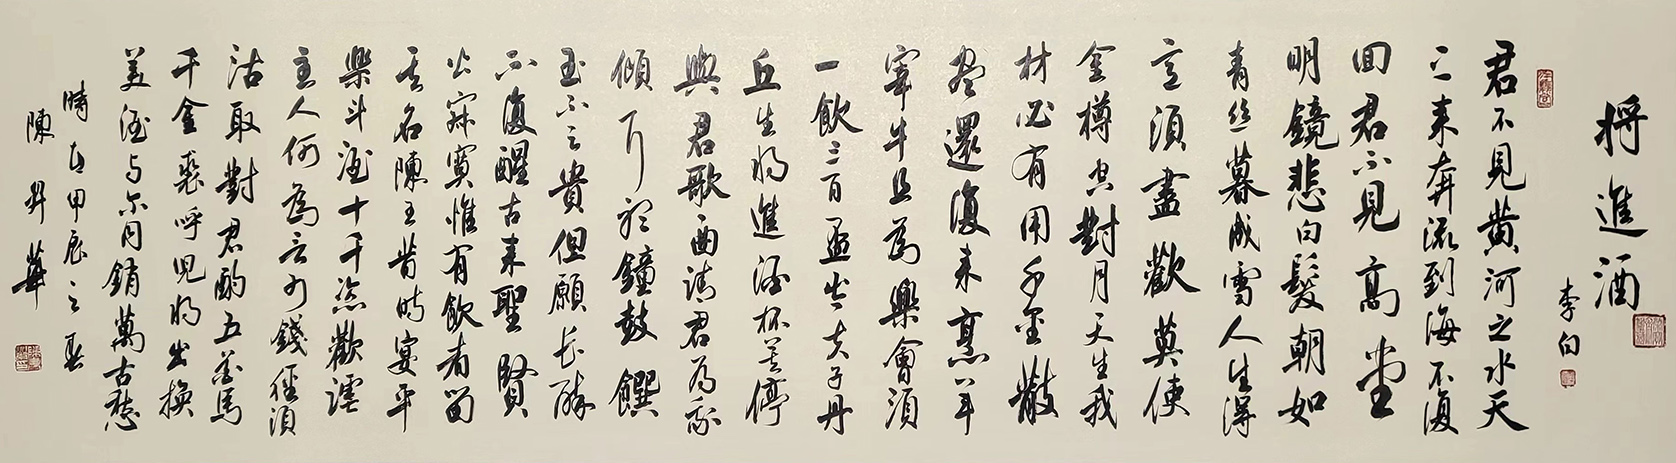 將進酒
李白
君不見黄河之水天
上来奔流到海不復
回君不見高堂
明鏡悲白髮朝如
青丝暮成雪人生得
意須盡歡莫使
金樽空對月天生我
材必有用千金散
盡還復来烹羊
宰牛且為樂會須
一飲三百盃岑夫子丹
丘生将進酒杯莫停
與君歌曲请君為我
傾耳聽鐘鼓饌
玉不足貴但願长醉
不復醒古来聖賢
皆寂寞惟有飲者留
其名陳王昔时宴平
樂斗酒十千恣歡謔
主人何為言少錢径須
沽取對君酌五花馬
千金裘呼兒将出换
美酒与尔同銷萬古愁
時在甲辰之春
陳昇華